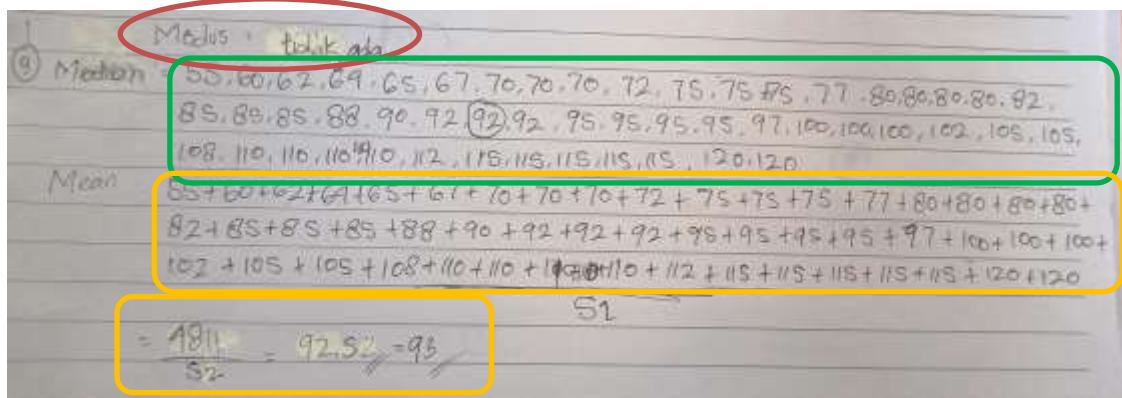 Modus : tidak ada
9 Median = 55, 60, 62, 64, 65, 67, 70, 70, 70, 72, 75, 75, 75, 77, 80, 80, 80, 80, 82,
85, 85, 85, 88, 90, 92, 92, 92, 95, 95, 95, 95, 97, 100, 100, 100, 102, 105, 105,
108, 110, 110, 110, 110, 112, 115, 115, 115, 115, 115, 120, 120
Mean 55+60+62+64+65+67+70+70+70+72+75+75+75+77+80+80+80+80+
82+85+85+85+88+90+92+92+92+95+95+95+95+97+100+100+100+
102+105+105+108+110+110+110+110+112+115+115+115+115+115+120+120
52
= 4811 = 92,52 = 93
52